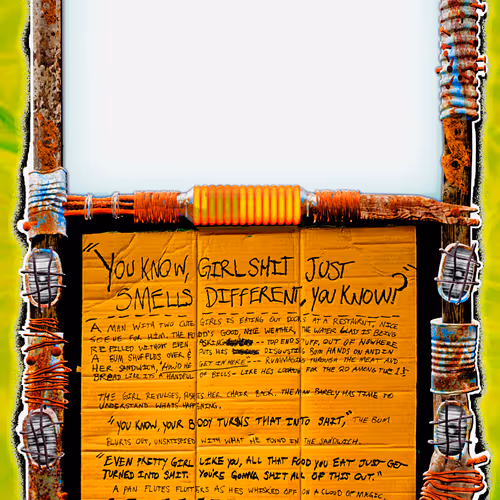 "YOU KNOW, GIRL SHIT JUST
SMELLS DIFFERENT, YOU KNOW?"
A MAN WITH TWO CUTE GIRLS IS EATING OUT DOORS AT A RESTAURNT, NICE
SCEVE FOR HIM. THE FOOD'S GOOD, NICE WEATHER, THE WATER GLASS IS BEING
REFILLED WITHOUT EVEN ASKING -- TOP END STUFF. OUT OF NOWHERE
A BUM SHUFFLES OVER & PUTS HIS DISGUSTING BUM HANDS ON AND IN
HER SANDWICH, GET IN HERE -- RUMMAGING THROUGH THE MEAT AND
BREAD LIKE IT'S A HANDFUL OF BILLS - LIKE HE'S LOOKING FOR THE 20 AMONG THE 1$
THE GIRL REVULSES, PUSHES HER CHAIR BACK. THE MAN BARELY HAS TIME TO
UNDERSTAND WHATS HAPPENING.
"YOU KNOW, YOUR BODY TURNS THAT INTO SHIT," THE BUM
BLURTS OUT, UNSATISFIED WITH WHAT HE FOUND IN THE SANDWICH.
"EVEN PRETTY GIRL LIKE YOU, ALL THAT FOOD YOU EAT JUST GET
TURNED INTO SHIT. YOU'RE GONNA SHIT ALL OF THIS OUT."
A PAN FLUTES FLUTTERS AS HE'S WHISKED OFF ON A CLOUD OF MAGIC.